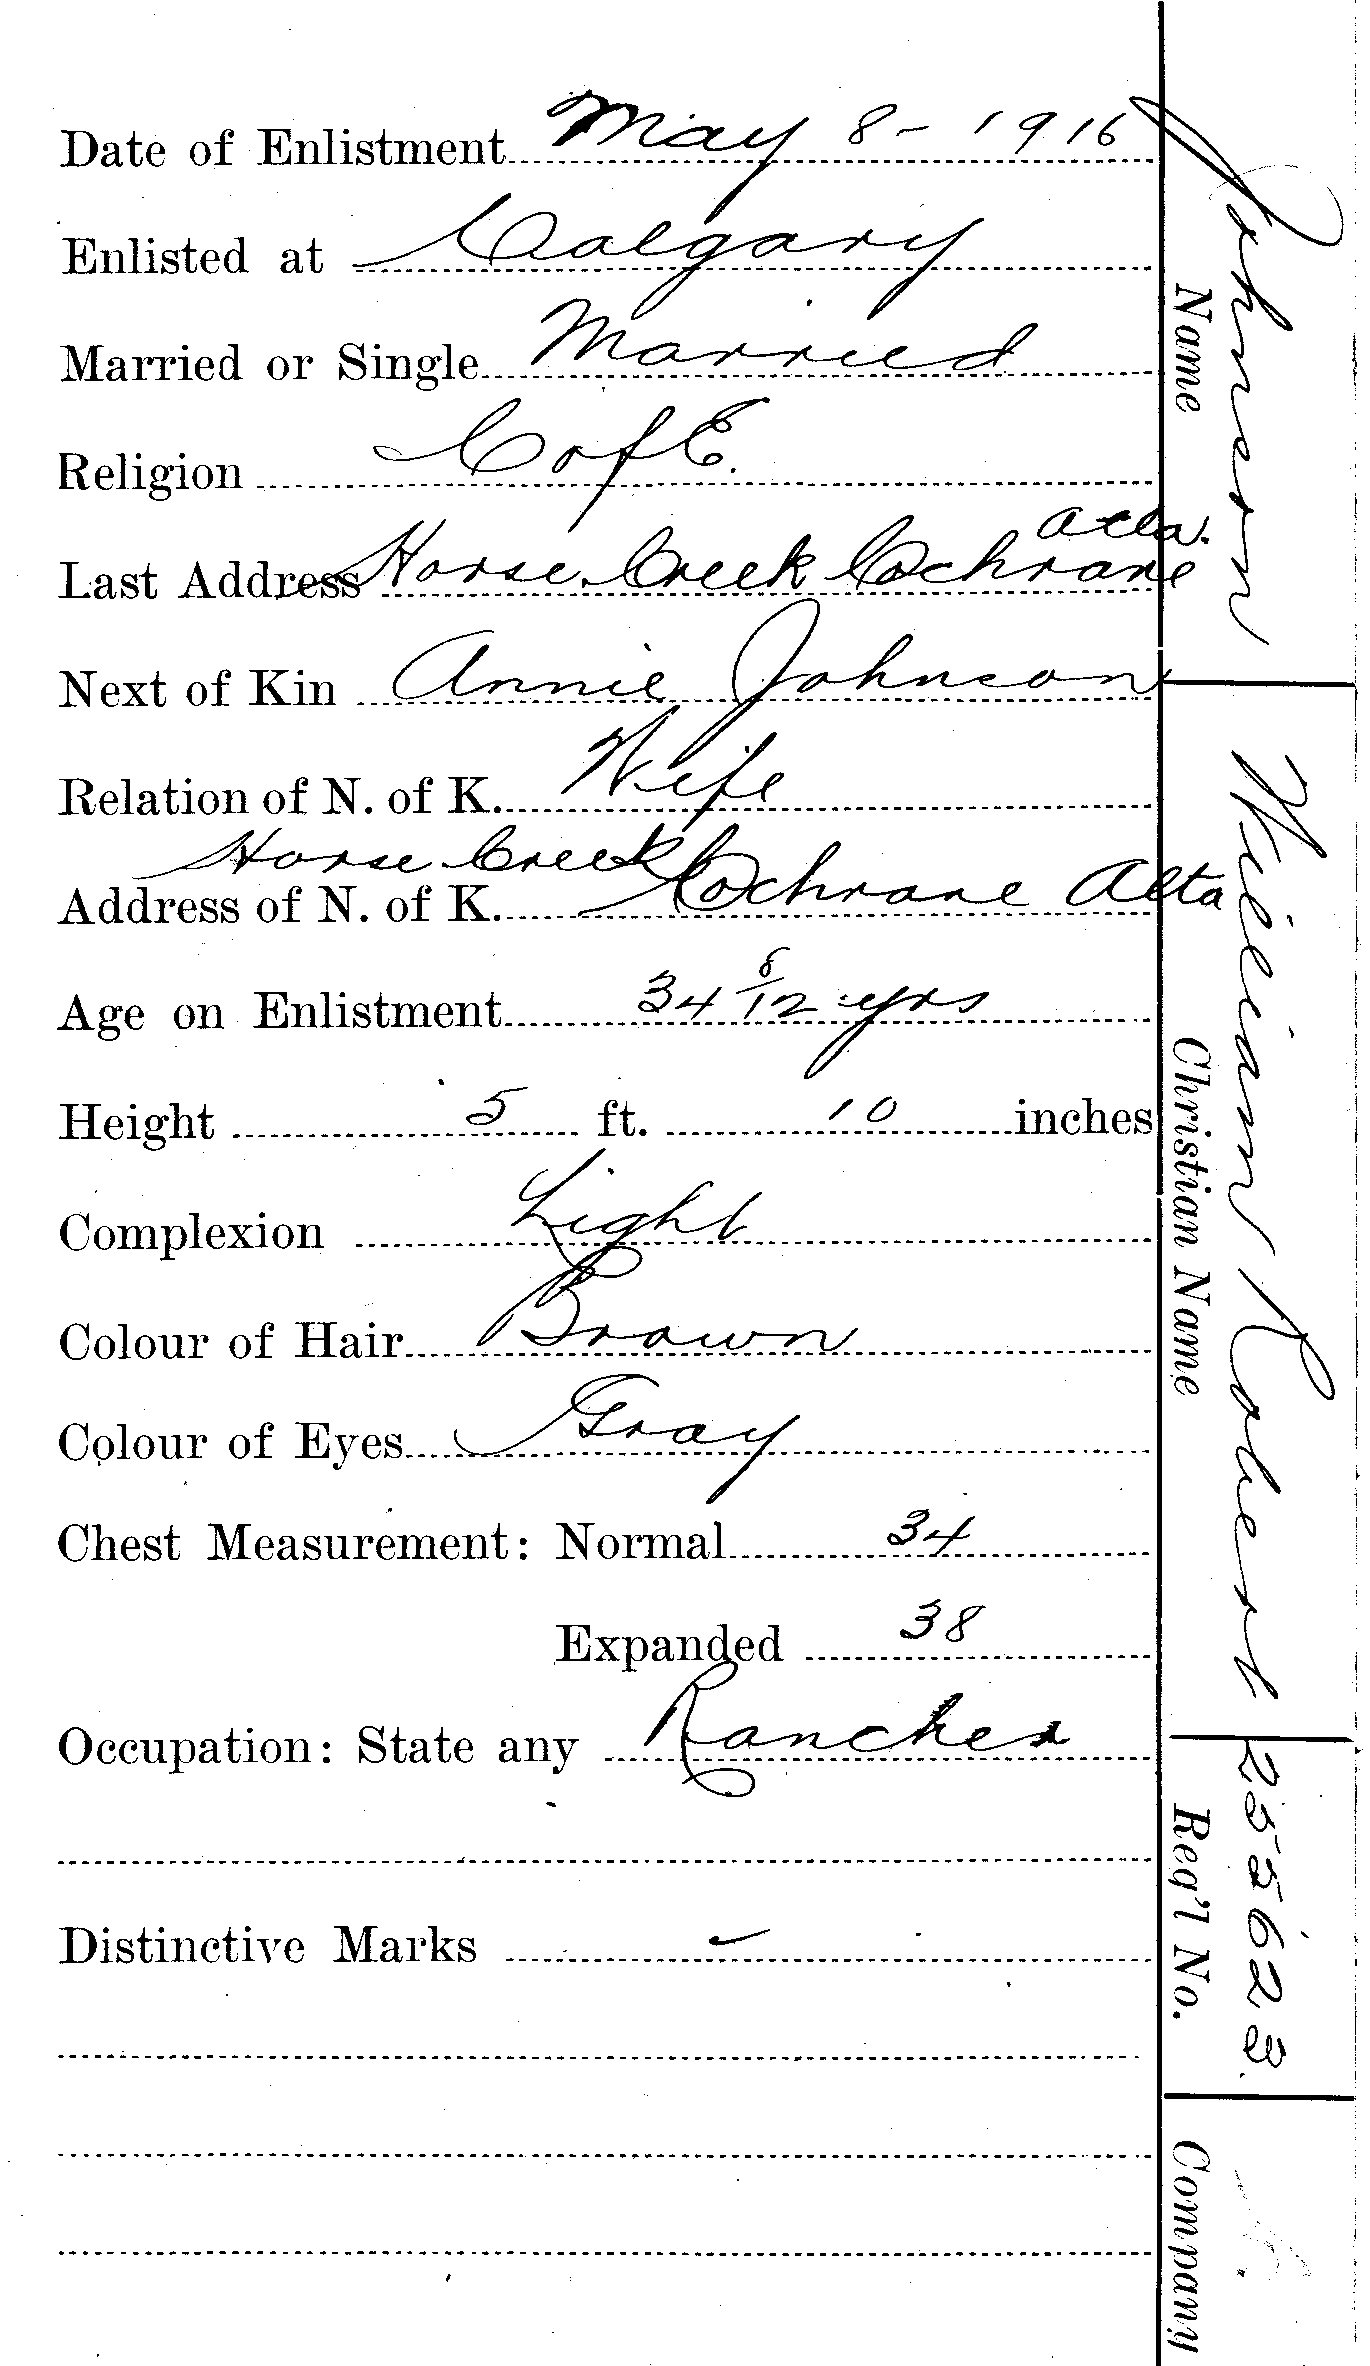 Date of Enlistment May 8 - 1916
Enlisted at Calgary
Married or Single Married
Religion C of E.
Alta.
Last Address Horse Creek Cochrane
Next of Kin Annie Johnson
Relation of N. of K. Wife
Horse Creek
Address of N. of K. Cochrane Alta
Age on Enlistment 34 8/12 yrs
Height 5 ft. 10 inches
Complexion Light
Colour of Hair Brown
Colour of Eyes Gray
Chest Measurement: Normal 34
Expanded 38
Occupation: State any Rancher
Distinctive Marks -
Johnson
Name
William Robert
Christian Name
255623
Reg'l No.
Company